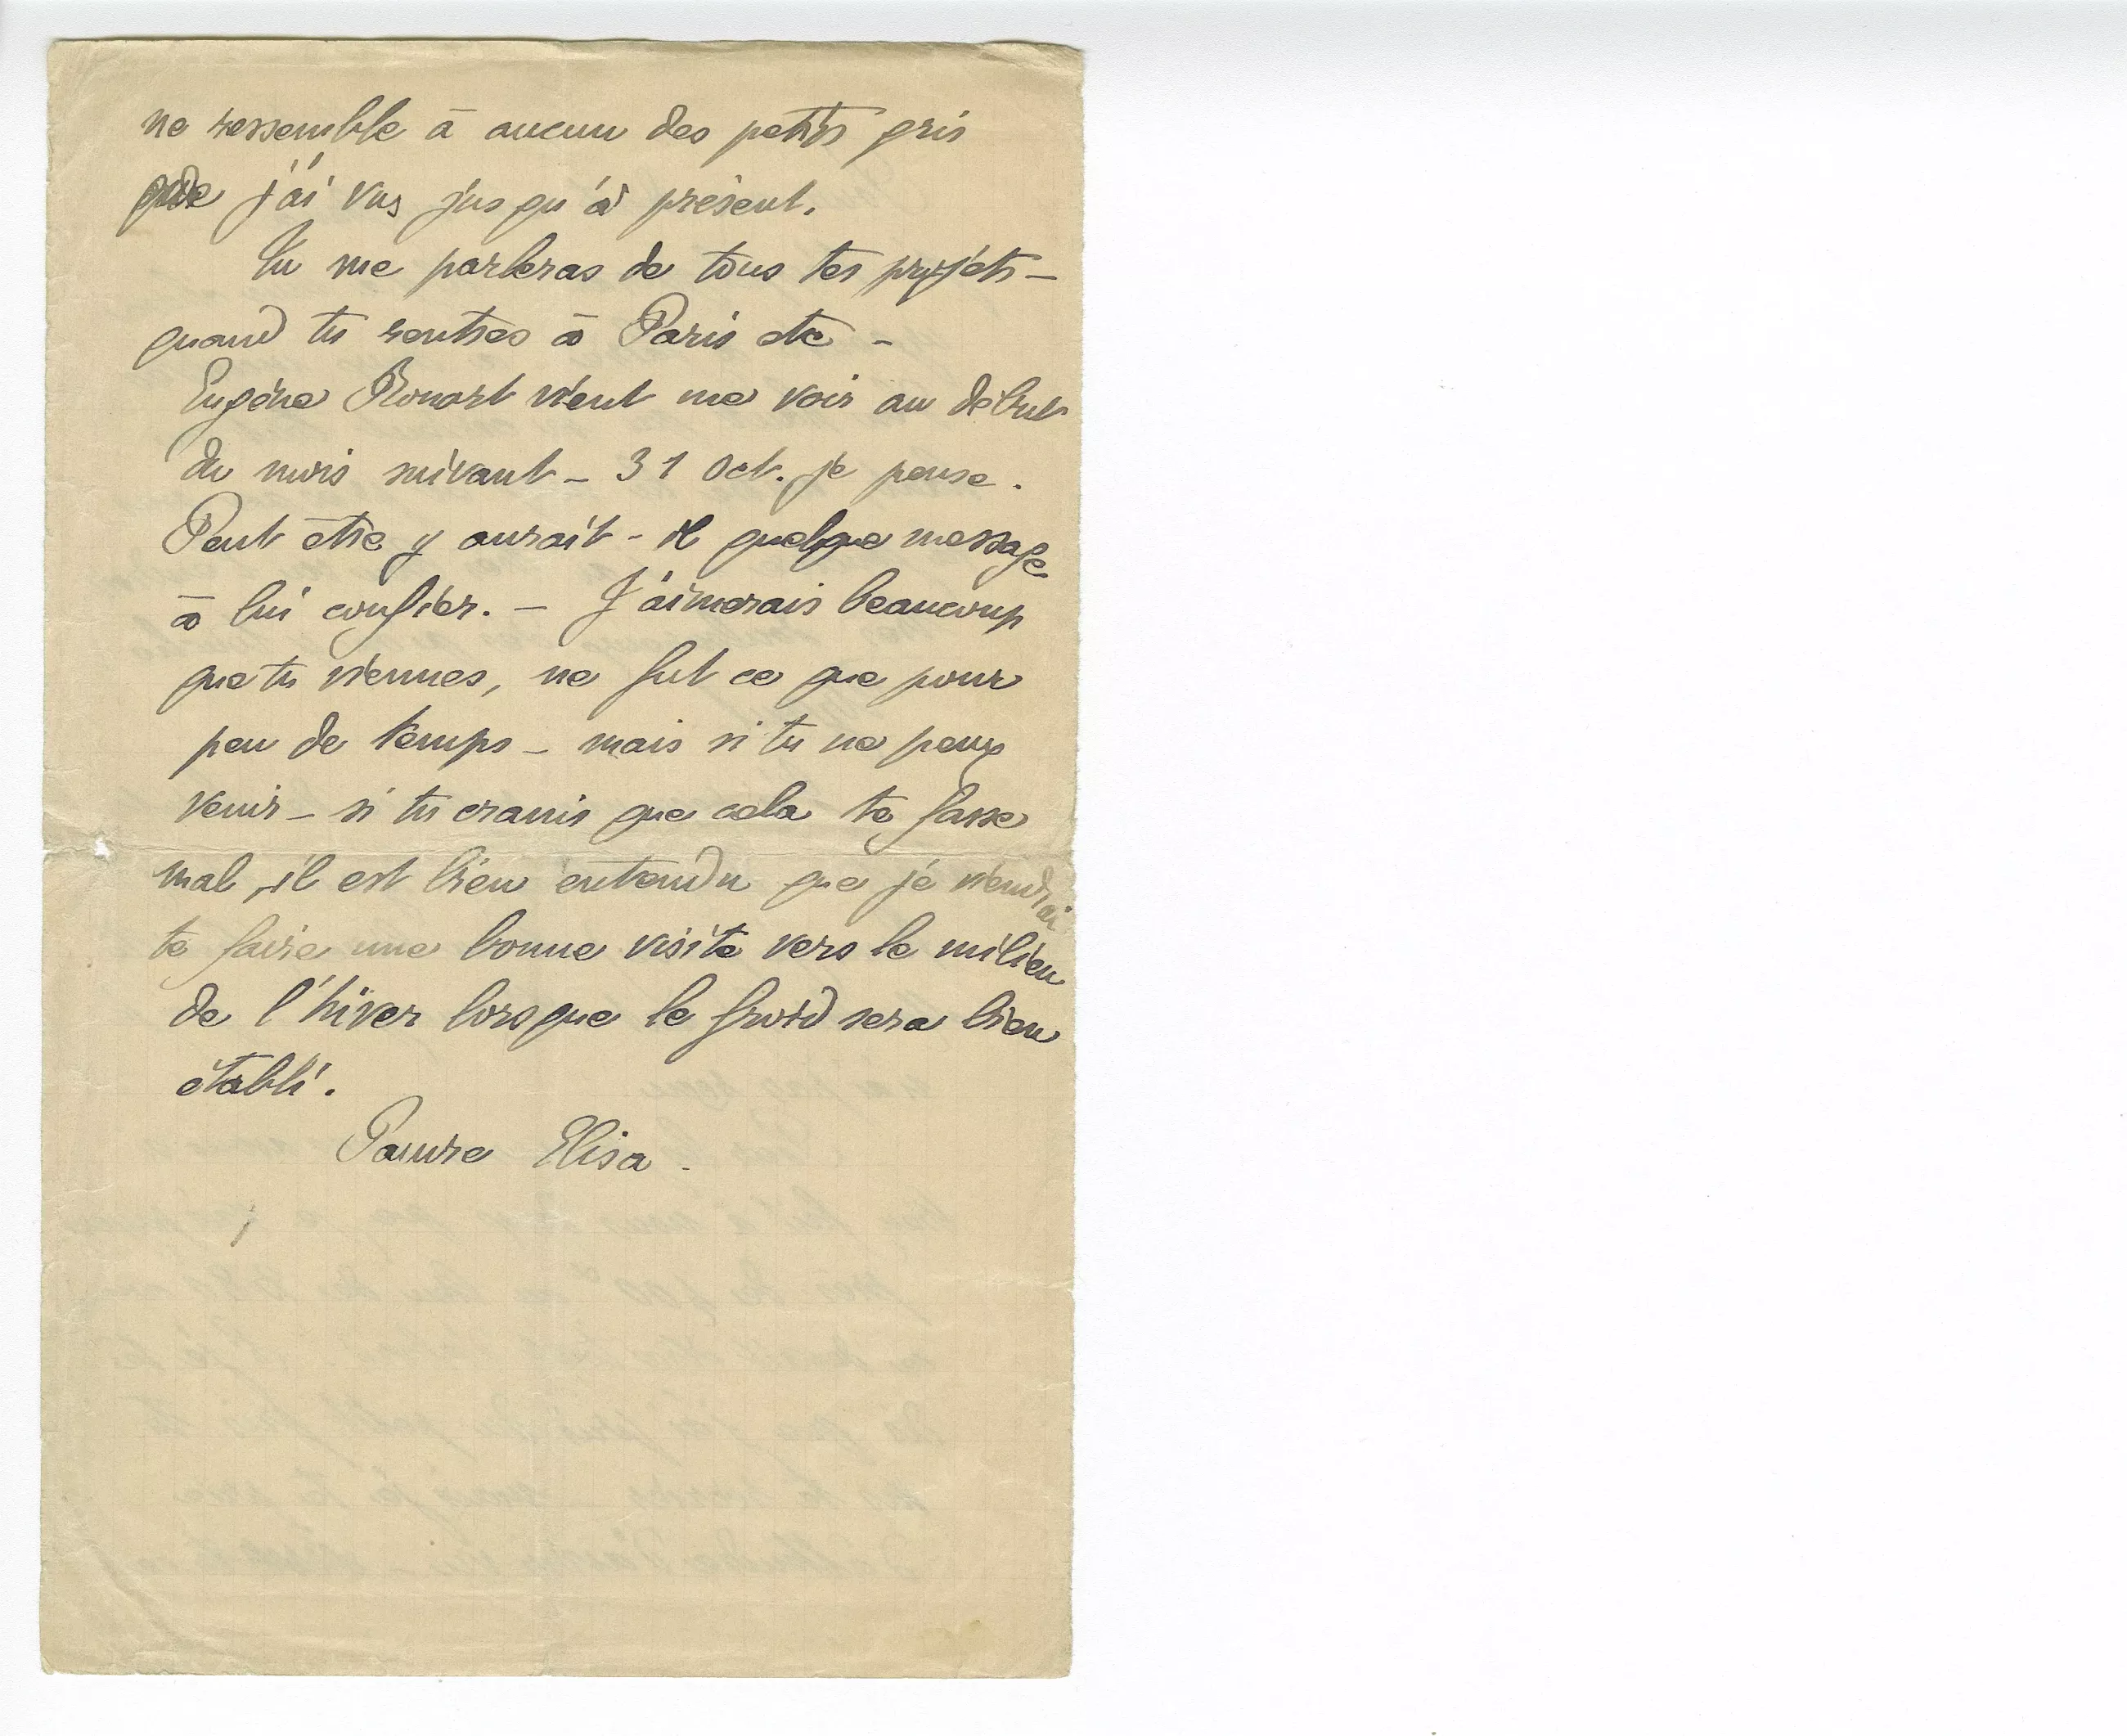 ne ressemble à aucun des petits gris
que j'ai vus jusqu'à présent.
Tu me parleras de tous tes projets –
quand tu rentres à Paris etc –
Eugène Rouart vient me voir au début
du mois suivant – 31 Oct. je pense.
Peut être y aurait-il quelque message
à lui confier. – J'aimerais beaucoup
que tu viennes, ne fut ce que pour
peu de temps – mais si tu ne peux
venir – si tu crains que cela te fasse
mal, il est bien entendu que je viendrai
te faire une bonne visite vers le milieu
de l'hiver lorsque le froid sera bien
établi.
Pauvre Elisa.